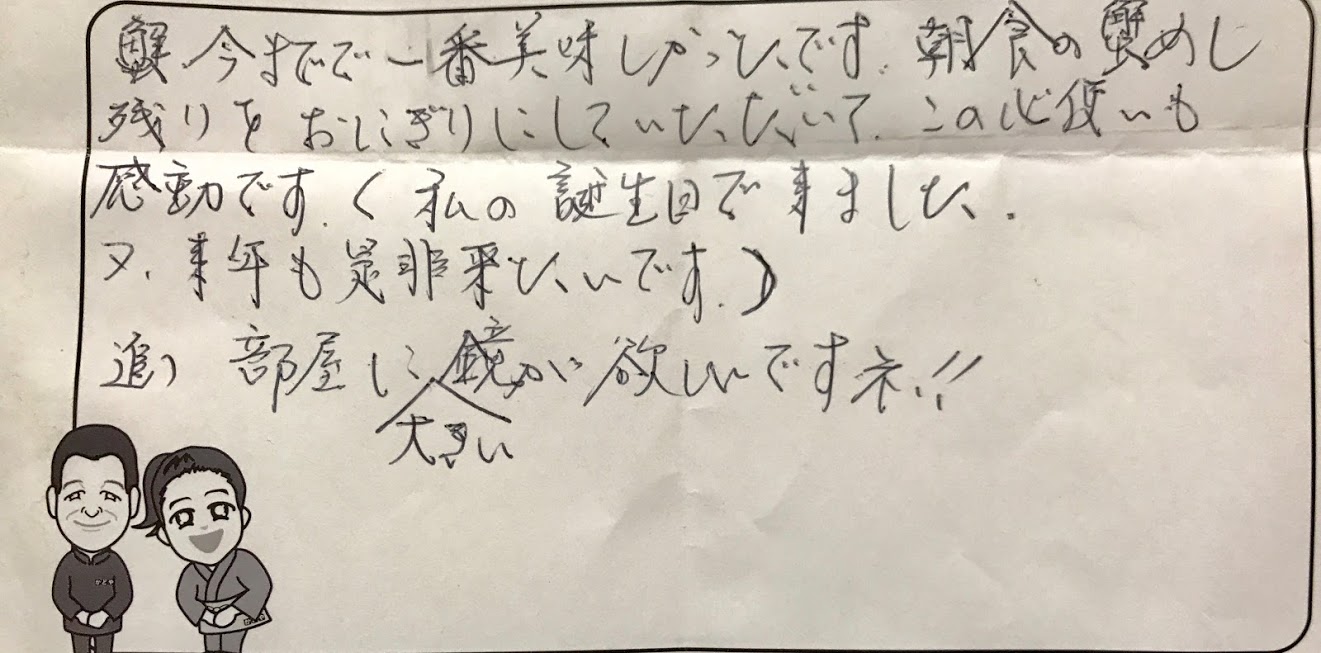 蟹 今までで一番美味しかったです。朝食の蟹めし
残りを おにぎりにしていただいて、この心使いも
感動です。く 私の 誕生日で 来ました。
又、来年も是非来たいです。)
追) 部屋に 鏡が 欲しいですネ!!
大きい